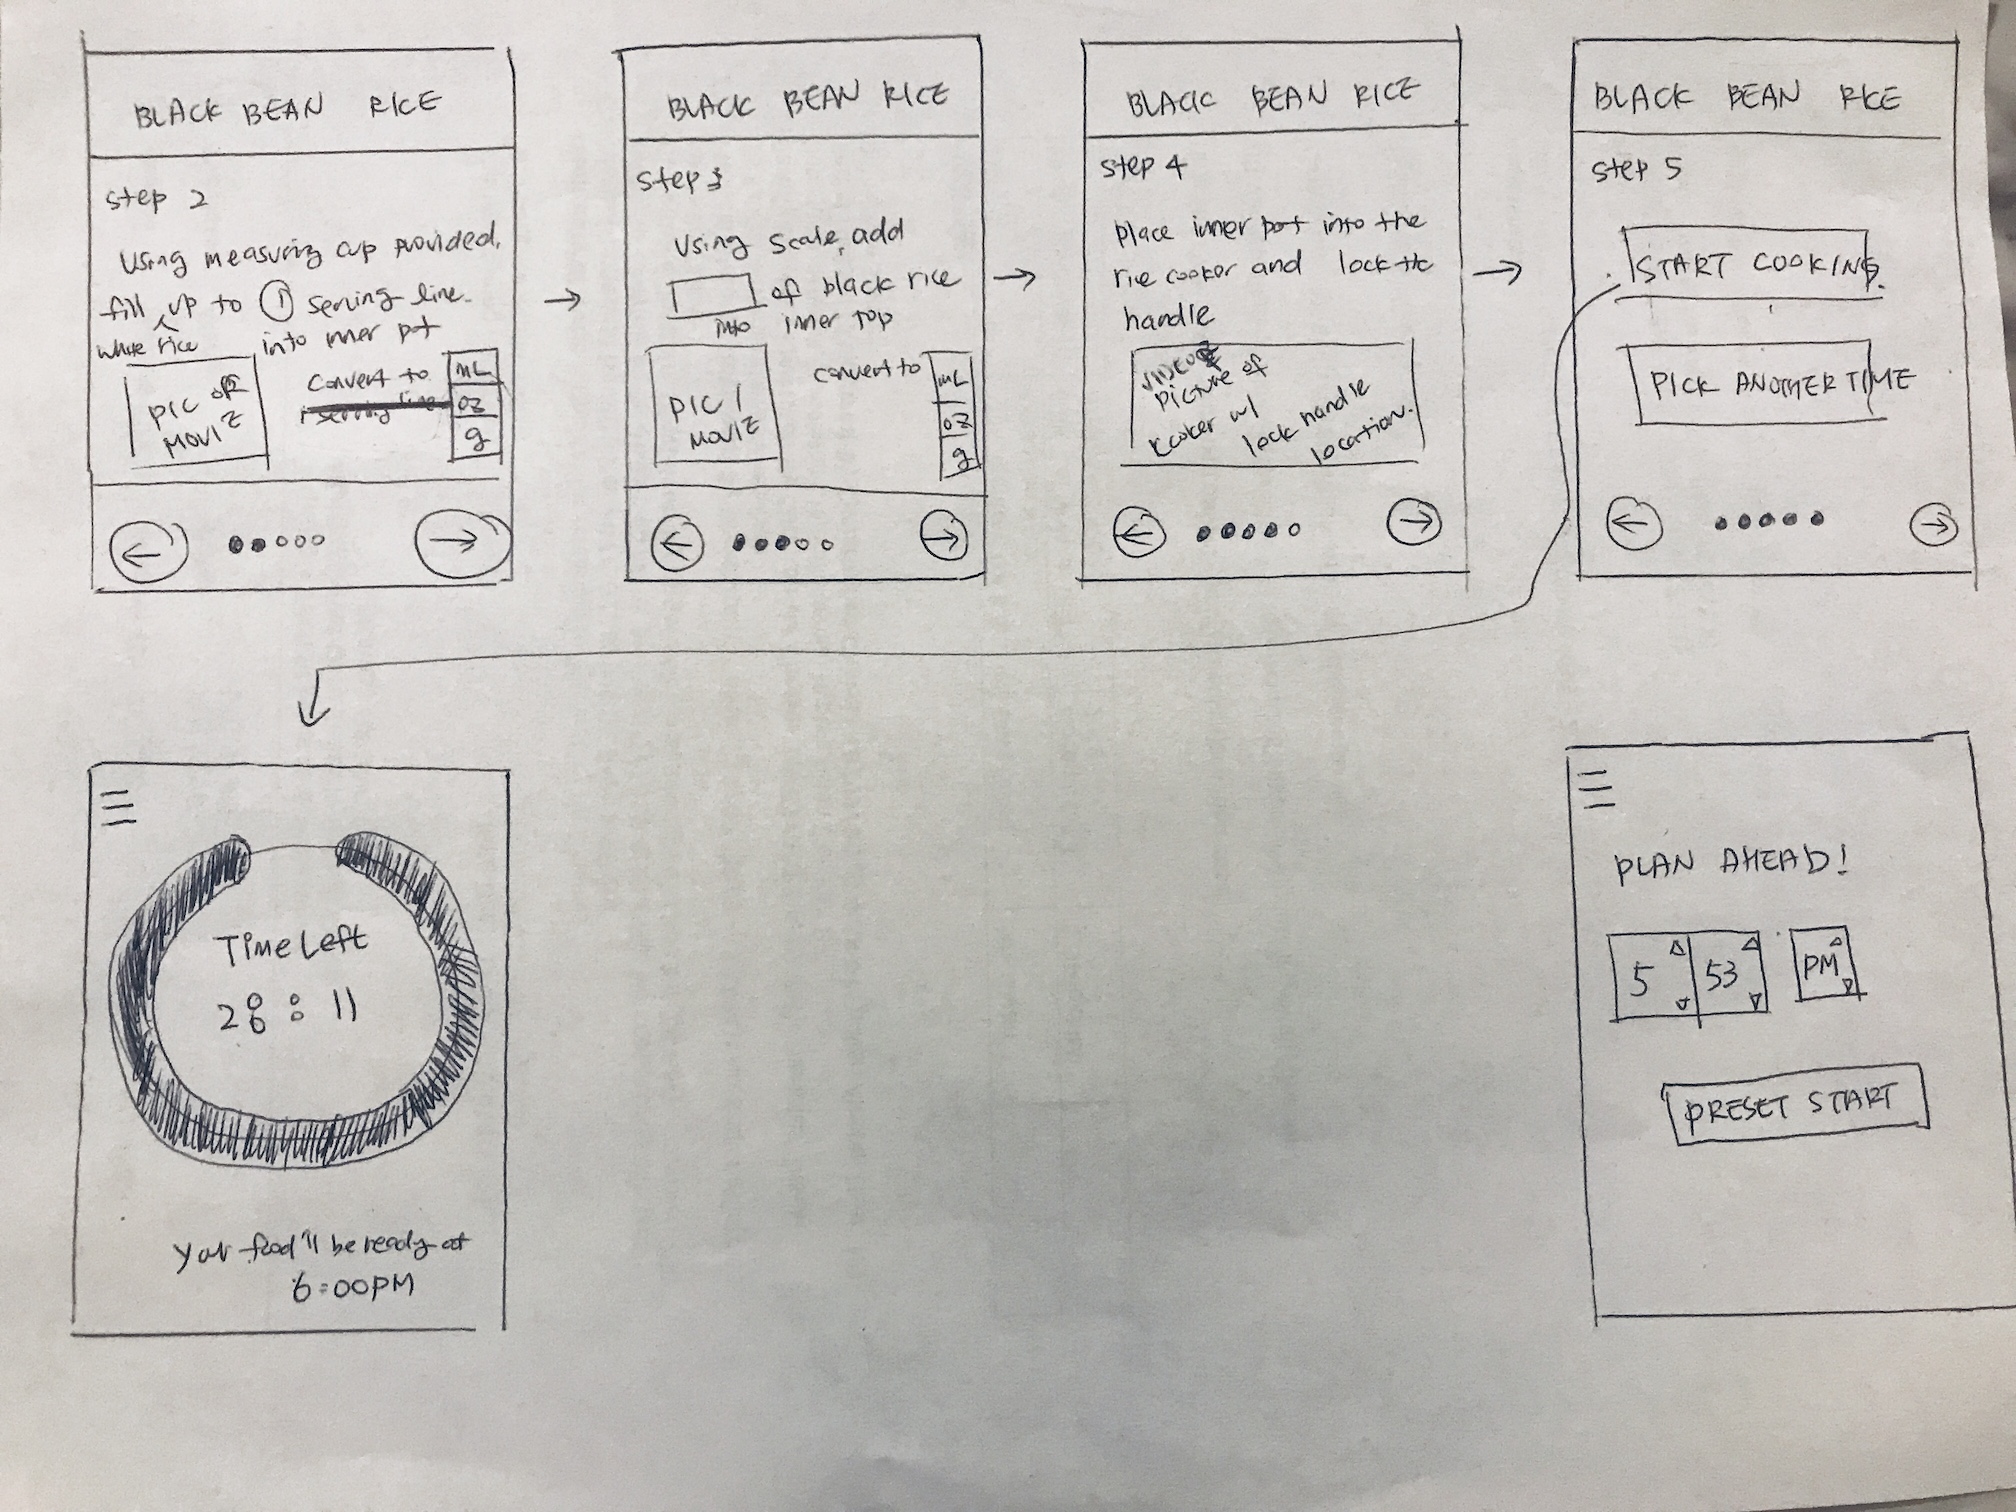 BLACK BEAN RICE
step 2
Using measuring cup provided,
fill up to ① serving line.
white rice
into inner pot
PIC or
MOVIE
convert to
serving line
mL
oz
g
BLACK BEAN RICE
step 3
Using scale, add
of black rice
into inner top
PIC /
MOVIE
convert to
mL
oz
g
BLACK BEAN RICE
step 4
place inner pot into the
rice cooker and lock the
handle
picture of
cooker w/ lock handle
location.
BLACK BEAN RICE
step 5
START COOKING
PICK ANOTHER TIME
Time Left
28 : 11
Your food'll be ready at
6:00PM
PLAN AHEAD!
5 53 PM
PRESET START